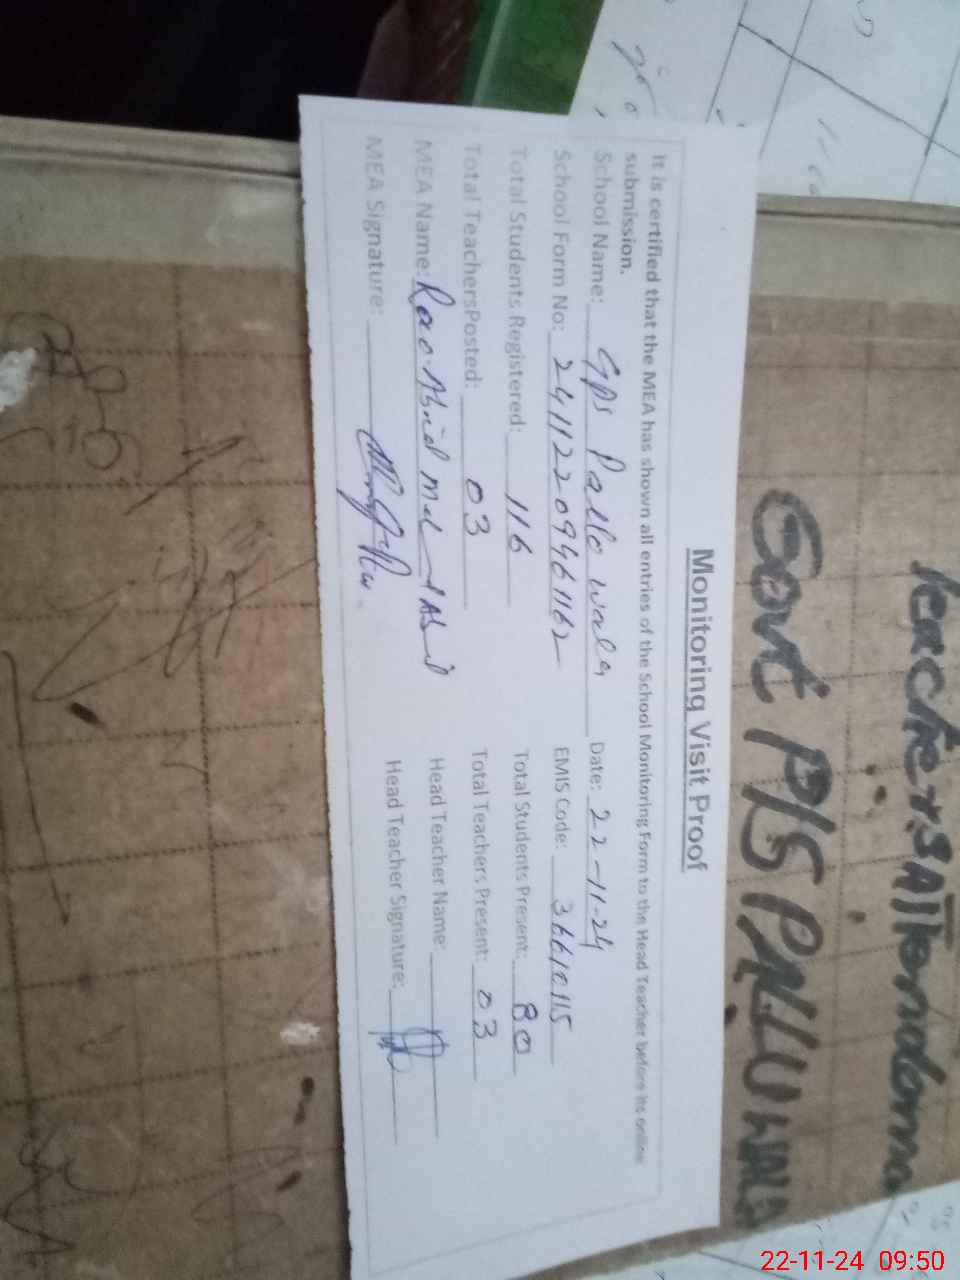 Teachers Attendance
Govt P/S PALLUWALA
Monitoring Visit Proof
It is certified that the MEA has shown all entries of the School Monitoring Form to the Head Teacher before its online
submission.
School Name: GPS Pallo wala Date: 22-11-24
School Form No: 24112209461162 EMIS Code: 36610115
Total Students Registered: 116 Total Students Present: 80
Total TeachersPosted: 03 Total Teachers Present: 03
MEA Name: Rao Head Teacher Name:
MEA Signature: Head Teacher Signature:
22-11-24 09:50